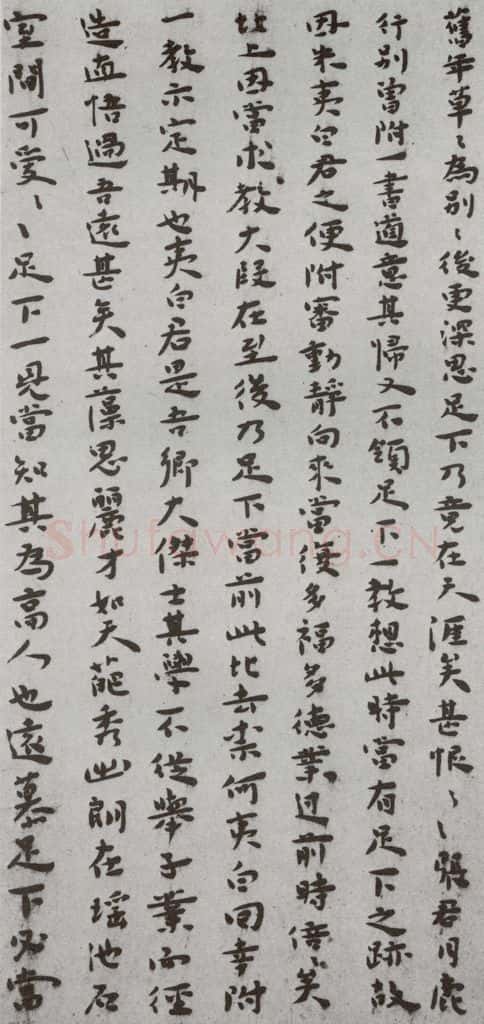 舊年草〻為別〻後更深思足下乃竟在天涯矣甚恨〻〻張君月鹿
行別曾附一書適意其歸又不領足下一教想此時當有足下之跡故
因朱夷白君之便附審動靜向來當復多福多德業过前時倍〻矣
北上因當求教大段在至後乃足下當前此北去柰何夷白回幸附
一教示定期也夷白君是吾鄉大傑士其學不從舉子業而徑
造直悟過吾遠甚矣其藻思麗才如天葩秀出朗在瑶池石
室間可愛〻〻足下一見當知其為高人也遠慕足下必當
Shufawang.CN